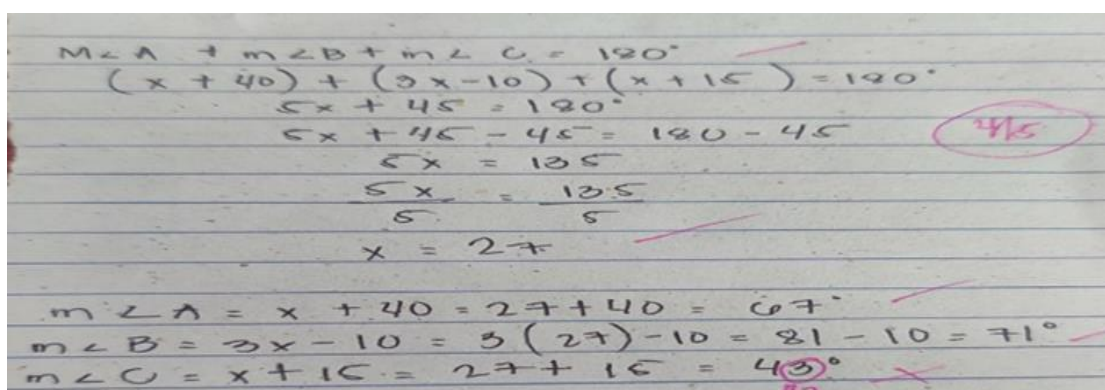 m∠A + m∠B + m∠C = 180°
(x + 40) + (3x - 10) + (x + 15) = 180°
5x + 45 = 180°
5x + 45 - 45 = 180 - 45
4/5
5x = 135
5x/5 = 135/5
x = 27
m∠A = x + 40 = 27 + 40 = 67°
m∠B = 3x - 10 = 3(27) - 10 = 81 - 10 = 71°
m∠C = x + 15 = 27 + 15 = 43°